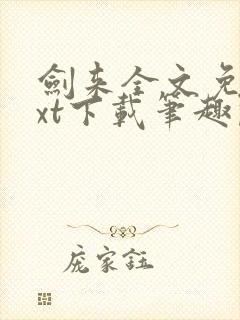 劍来全文免
xt下載筆趣
庞家鈺